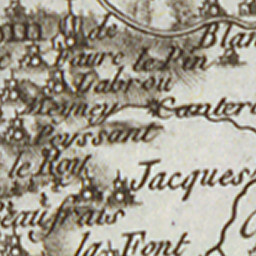 de
Blan
Faure le Pin
Labrou
Meyney
Cantere
Peyssant
le Roy
Jacques
Beaufrais
la Font